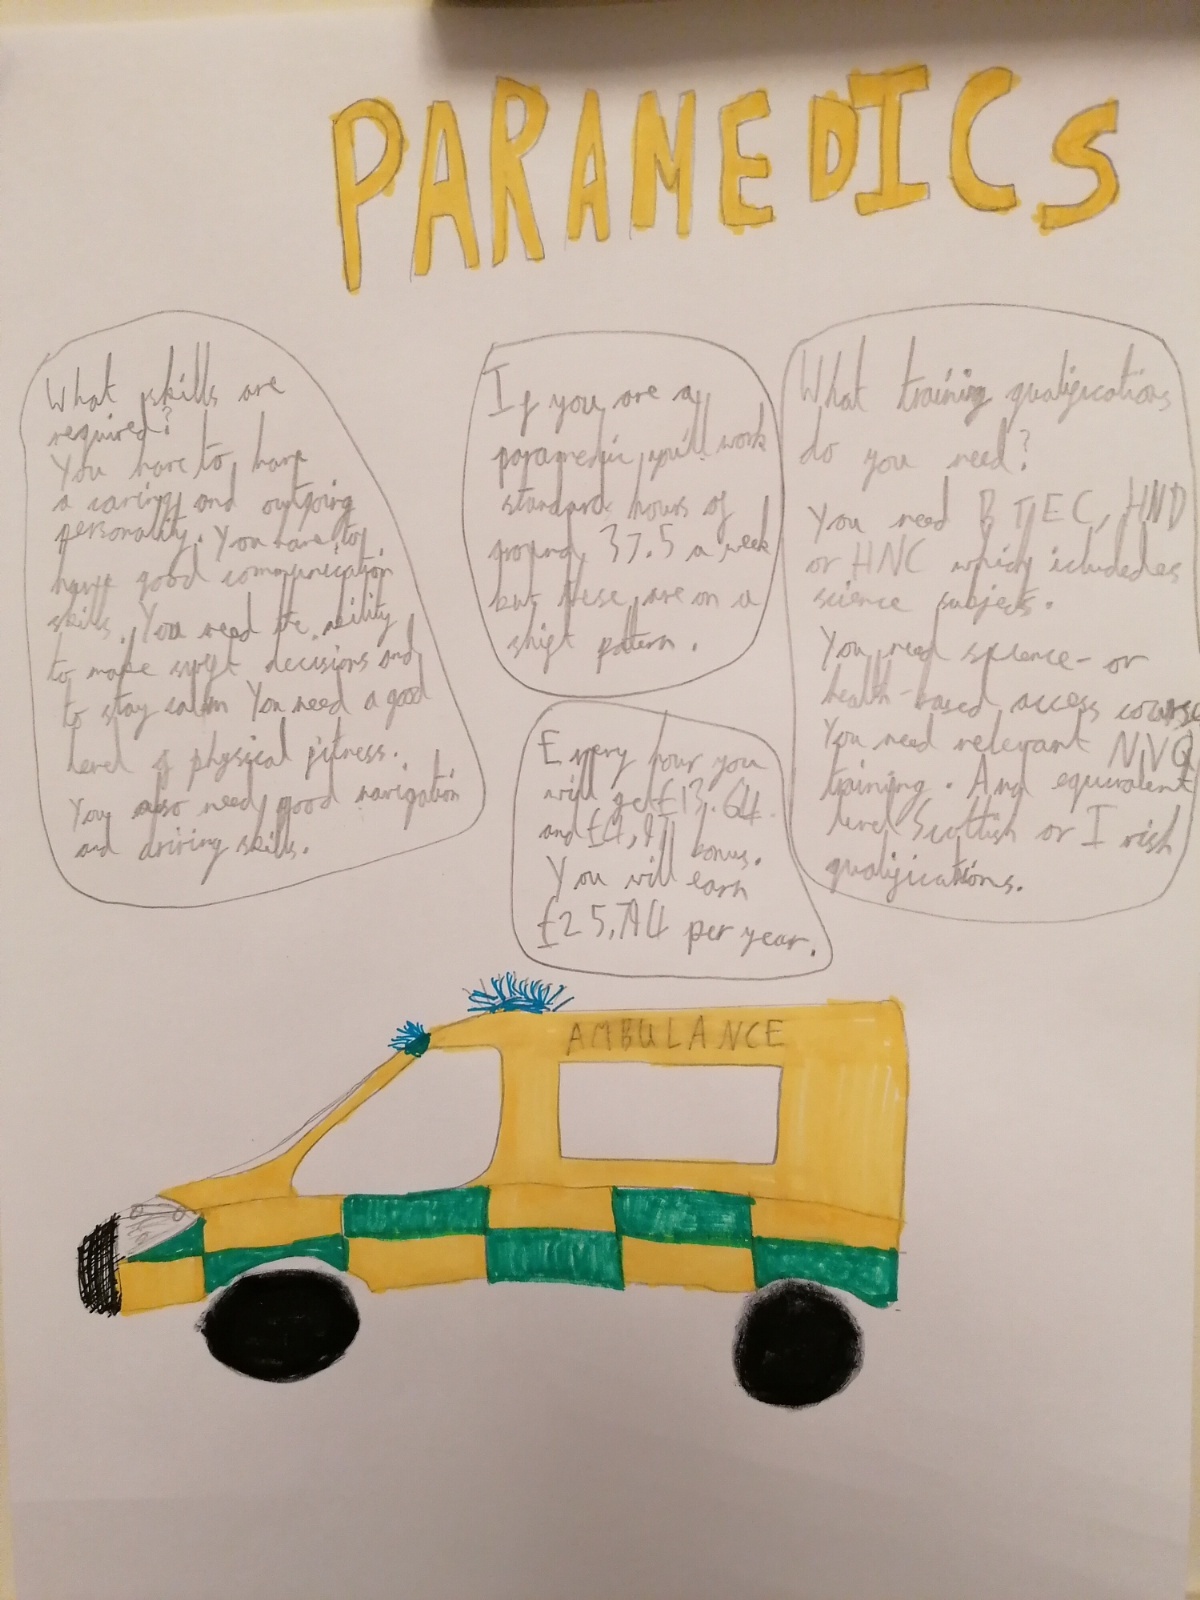 PARAMEDICS
What skills are
required?
You have to have
a caring and outgoing
personality. You have to
have good communication
skills. You need the ability
to make swift decisions and
to stay calm You need a good
level of physical fitness.
You also need good navigation
and driving skills.
If you are a
paramedic you'll work
standard hours of
around 37.5 a week
but these are on a
shift pattern.
Every hour you
will get £13.64
bonus.
You will earn
per year.
What training qualifications
do you need?
You need BTEC, HND
or HNC which icludedes
science subjects.
You need science- or
health-based access course
You need relevant NVQ
training. And equivalent
level Scottish or Irish
qualifications.
AMBULANCE